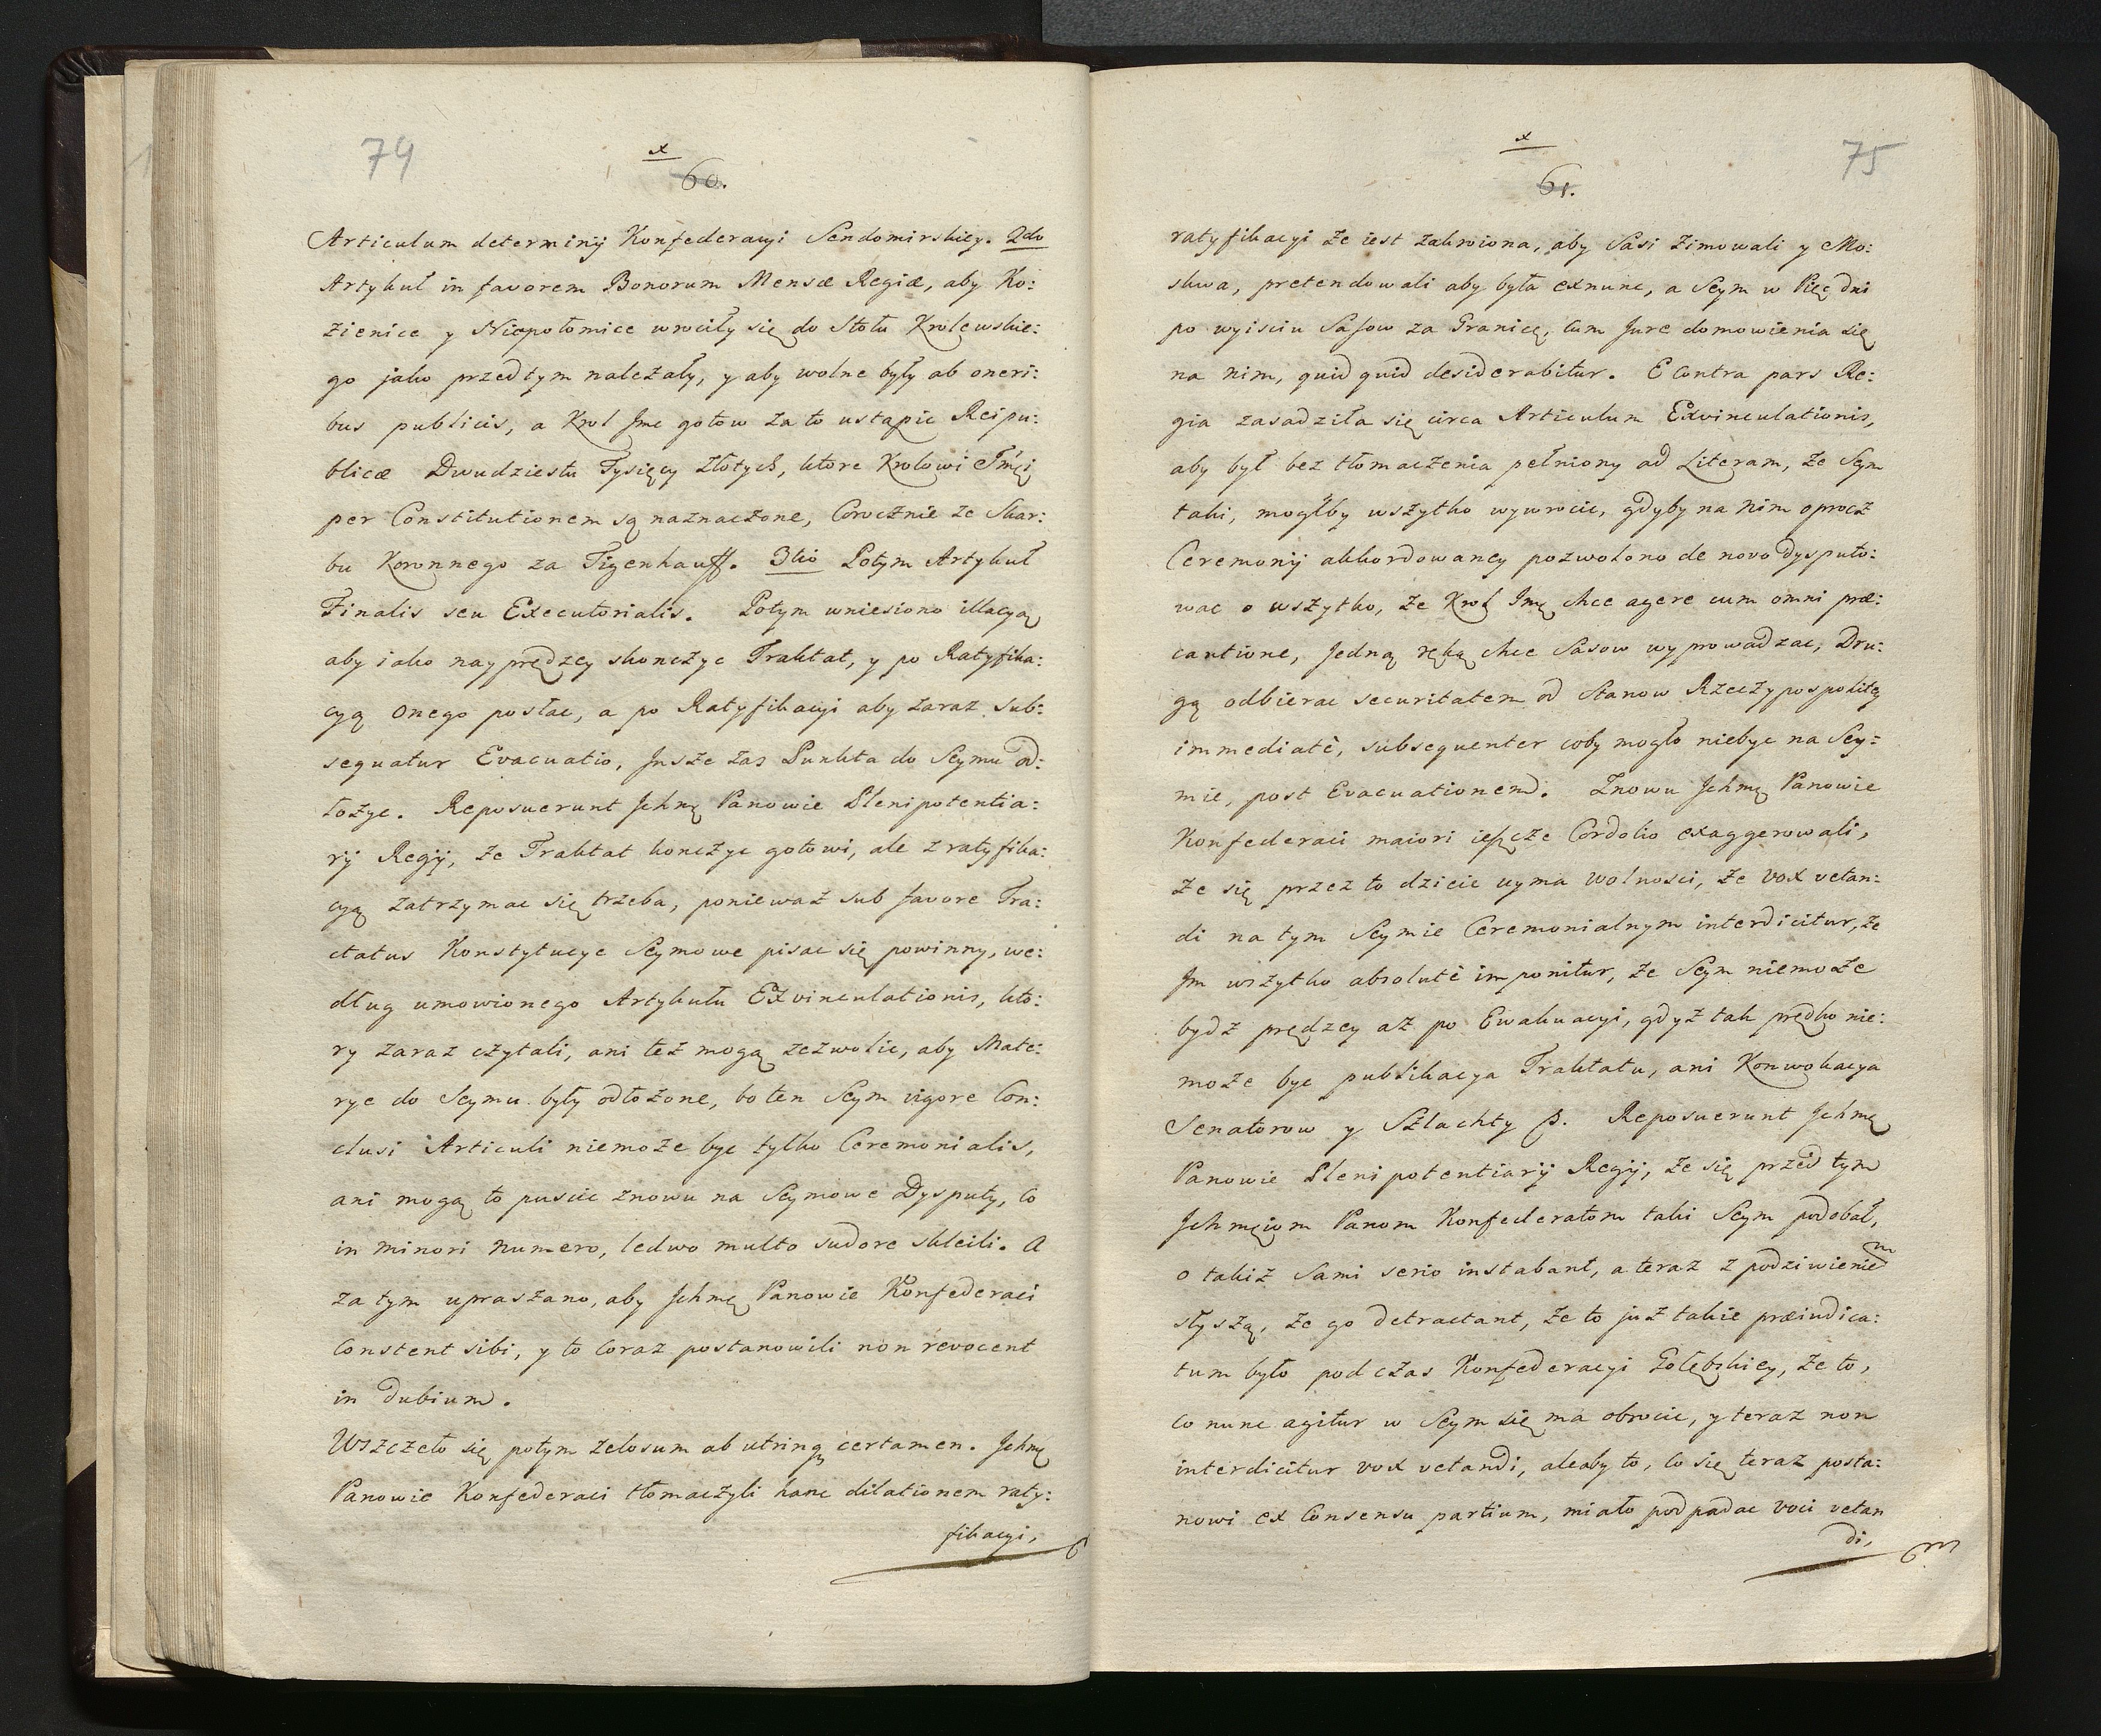 74
x
60.
Articulum determinij Konfederacyi Sendomirskiey. 2do
Artykuł in favorem Bonorum Mensæ Regiæ, aby Ko:
zienice y Niepołomice wrociły się do Stołu Krolewskie:
go jako przedtym nalezały, y aby wolne były ab oneri:
bus publicis, a Krol Jmc gotow za to ustąpic Reipu:
blicæ Dwudziestu Tysięcy Złotych, ktore Krolowi Jmci
per Constitutionem są naznaczone, Corocznie ze Skar:
bu Koronnego za Tigenhauff. 3tio Potym Artykuł
Finalis seu Executorialis. Potym wniesiono illacyą
aby iako nayprędzey skonczyc Traktat, y po Ratyfika:
cyą onego posłac, a po Ratyfikacyi aby zaraz sub:
sequatur Evacuatio, Jnsze zas Punkta do Seymu od:
łozyc. Reposuerunt Jchmę Panowie Plenipotentia:
rij Regij, ze Traktat konczyc gotowi, ale z ratyfika:
cyą zatrzymac się trzeba, poniewaz sub favore Tra:
ctatus Konstytucye Seymowe pisac się powinny, we:
dług umowionego Artykułu Exvinculationis, kto:
ry zaraz czytali, ani też mogą zezwolic, aby Mate:
rye do Seymu były odłożone, bo ten Seym vigore Con:
clusi Articuli niemoże byc tylko Ceremonialis,
ani mogą to puscic znowu na Seymowe Dysputy, co
in minori numero, ledwo multo sudore skleili. A
zatym upraszano, aby Jchmę Panowie Konfederaci
Constent sibi, y to coraz postanowili non revocent
in dubium.
Wszczeło się potym zelosum ab utrinq certamen. Jchmę
Panowie Konfederaci tłomaczyli hanc dilationem raty:
fikacyi,
75
x
61.
ratyfikacyi że iest zakroiona, aby Sasi zimowali y Mo:
skwa, pretendowali aby była exnunc, a Seym w Pięc dni
po wyisciu Sasow za Granicę, cum Jure domowienia się
na nim, quid quid desiderabitur. E Contra pars Re:
gia zasadziła się circa Articulum Exvinculationis,
aby był bez tłomaczenia pełniony ad Literam, że Seym
taki, mogłby wszytko wywrocic, gdyby na nim oprocz
Ceremonij akkordowaney pozwolono de novo dysputo:
wac o wszytko, że Krol Jmę chce agere cum omni præ:
cautione, Jedną ręką chce Sasow wyprowadzac, Dru:
gą odbierac securitatem od Stanow Rzeczypospolitey
immediatè, subsequenter coby mogło niebyc na Sey:
mie, post Evacuationem. Znowu Jchmę Panowie
Konfederaci maiori ieszcze Cordolio exaggerowali,
że się przez to dzieie uyma wolnosci, że vox vetan:
di na tym Seymie Ceremonialnym interdicitur, że
Jm wszytko absolutè imponitur, że Seym niemoże
bydz prędzey aż po Ewakuacyi, gdyż tak prędko nie:
może byc publikacya Traktatu, ani Konwokacya
Senatorow y Szlachty p. Reposuerunt Jchmę
Panowie Plenipotentiarij Regij, że się przed tym
Jchmęiom Panom Konfederatom taki Seym podobał,
o takiż sami serio instabant, a teraz z podziwieniem
słyszą, że go detractant, że to już takie præiudica:
tum było podczas Konfederacyi Gołębskiey, że to,
co nunc agitur w Seym się ma obrocic, y teraz non
interdicitur vox vetandi, aleaby to, co się teraz posta:
nowi ex Consensu partium, miało podpadac voci vetan
di,